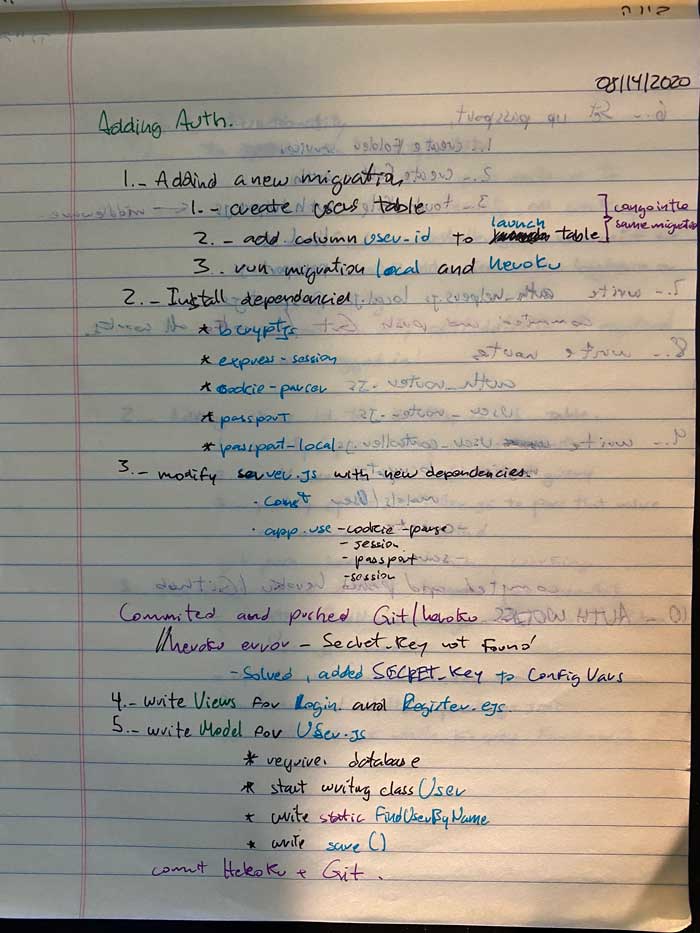 08/14/2020
Adding Auth.
1.- Addind a new migration
1.- create users table
2.- add column user-id to launch table
can go in the same migration
3.. run migration local and heroku
2.- Install dependancies.
* bcryptjs
* express-session
* cookie-parser
* passport
* passport-local
3.- modify server.js with new dependencies.
· const
· app.use -cookie-parse
- session
- passport
-session
Commited and pushed Git/heroku
//heroku error - Secret_Key not found
-Solved, added SECRET_Key to Config Vars
4.- write Views for Login. and Register.ejs.
5.- write Model for User.js
* require. database
* start writing class User
* write static FindUserByName
* write save()
commit Hekoku + Git.